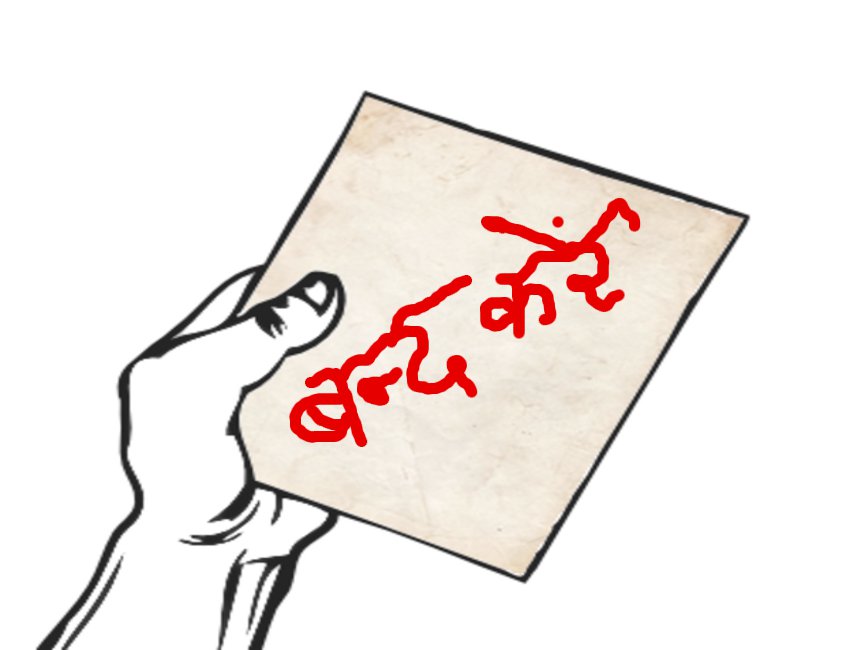 बन्द करें